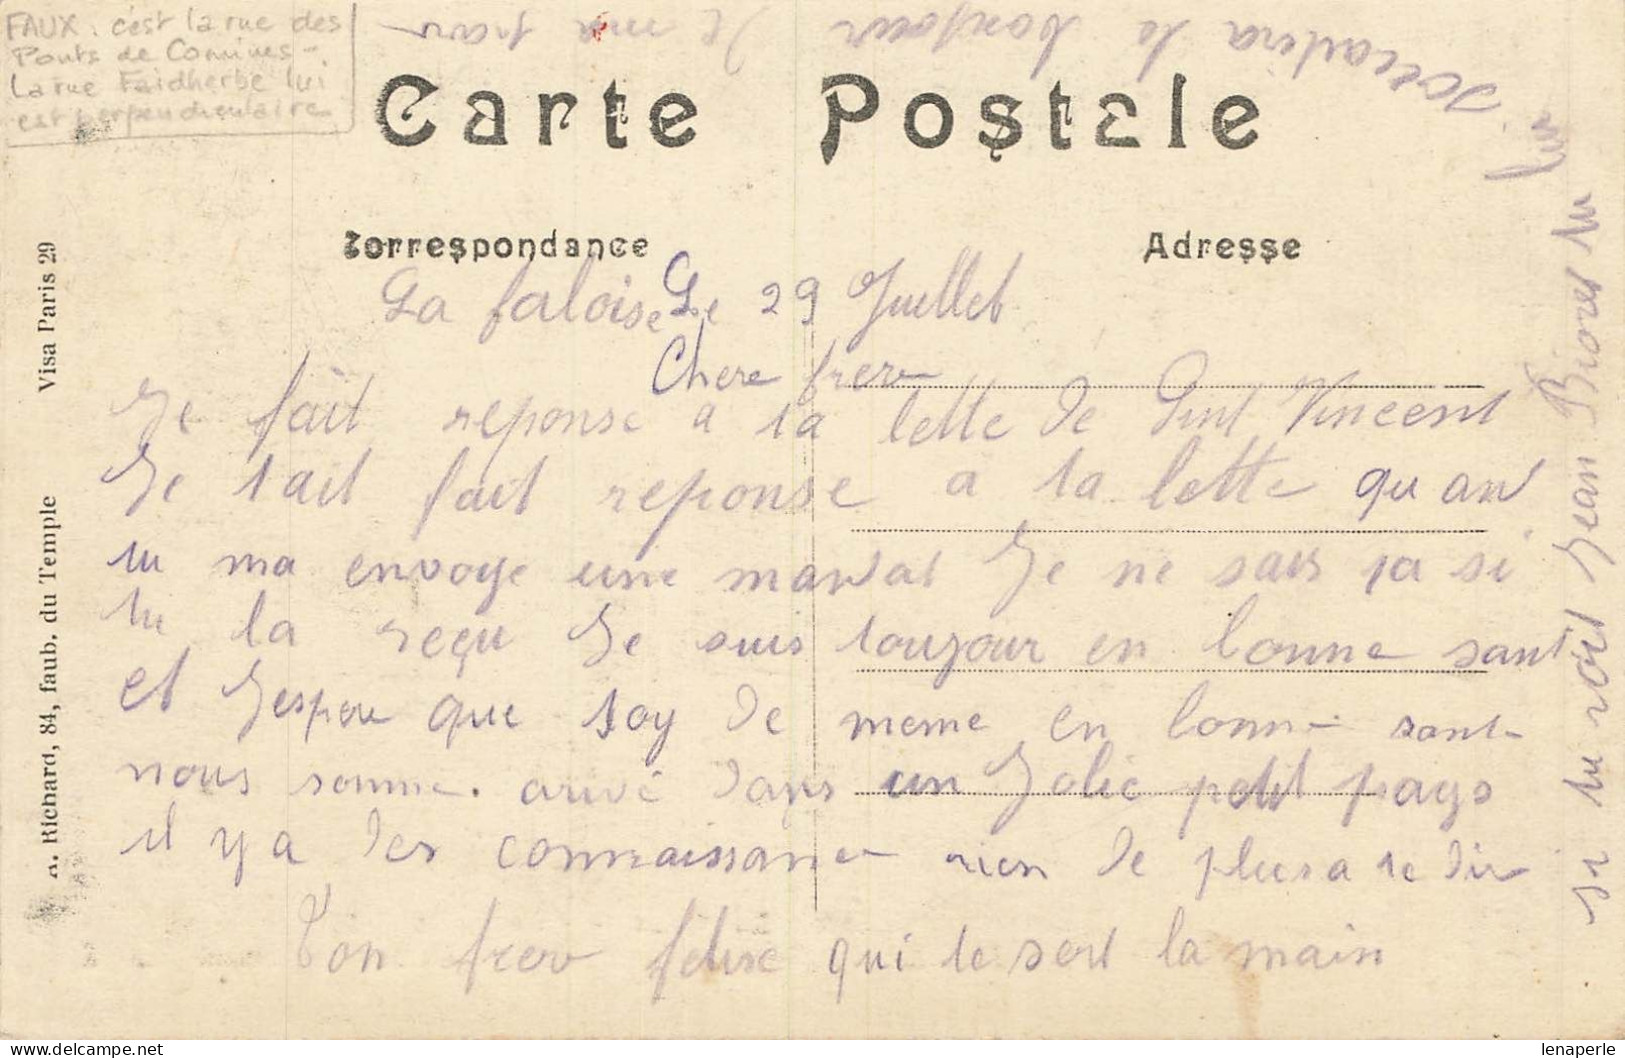 FAUX : c'est la rue des
Ponts de Comines -
La rue Faidherbe lui
est perpendiculaire
Carte Postale
Correspondance
Adresse
A. Richard, 84, faub. du Temple Visa Paris 29
La faloise Le 29 Juellet
Chere frere
Je fait reponse a la lette de Vincent
Je tait fait reponse a la lette quand
tu ma envoye une mandat Je ne sais pa si
tu la reçu Je suis toujour en bonne sant
et Jespere que toy de meme en bonne sante
nous somme arivé dans un Jolie petit pays
il y a des connaissance rien de plus a te dir
Ton frere felixe qui te sert la main
si tu voit Jean tu
lui souaitera le bonjour
de ma par
lenaperle